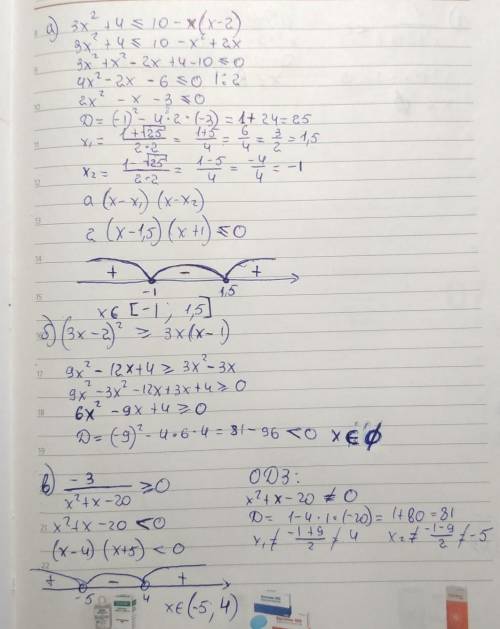 а) 3x² + 4 ≤ 10 - x(x-2)
3x² + 4 ≤ 10 - x² + 2x
3x² + x² - 2x + 4 - 10 ≤ 0
4x² - 2x - 6 ≤ 0 |:2
2x² - x - 3 ≤ 0
D = (-1)² - 4·2·(-3) = 1 + 24 = 25
x₁ = (1+√25)/(2·2) = (1+5)/4 = 6/4 = 3/2 = 1,5
x₂ = (1-√25)/(2·2) = (1-5)/4 = -4/4 = -1
a(x-x₁)(x-x₂)
2(x-1,5)(x+1) ≤ 0
+ - +
-1 1,5
x ∈ [-1; 1,5]
б) (3x-2)² ≥ 3x(x-1)
9x² - 12x + 4 ≥ 3x² - 3x
9x² - 3x² - 12x + 3x + 4 ≥ 0
6x² - 9x + 4 ≥ 0
D = (-9)² - 4·6·4 = 81 - 96 < 0 x ∈ ∅
в) -3/(x²+x-20) ≥ 0
x² + x - 20 < 0
(x-4)(x+5) < 0
+ - +
-5 4
x ∈ (-5, 4)
ОДЗ:
x² + x - 20 ≠ 0
D = 1 - 4·1·(-20) = 1 + 80 = 81
x₁ ≠ (-1+9)/2 ≠ 4 x₂ ≠ (-1-9)/2 ≠ -5